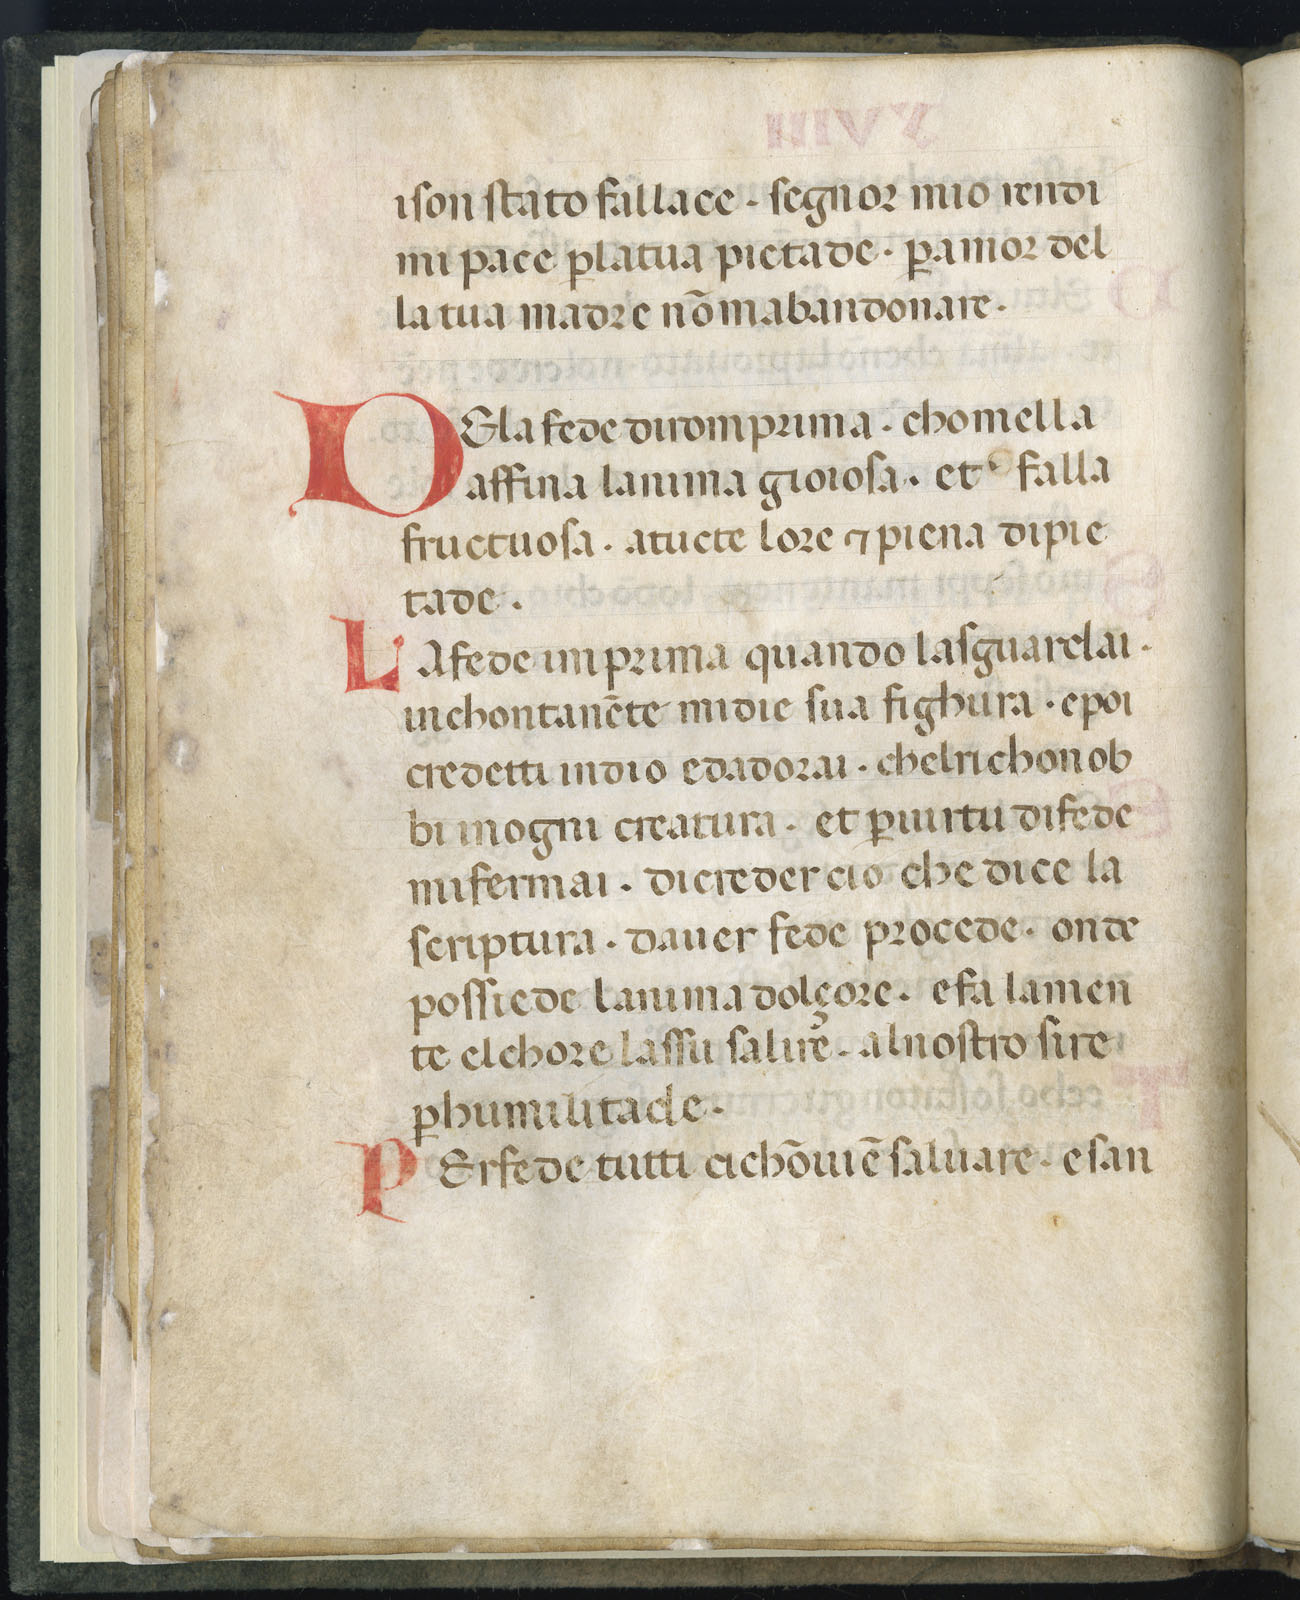 ison stato fallace · segnor mio rendi
mi pace ꝑ la tua pietade · ꝑ amor del
la tua madre nō mabandonare ·
DE la fede diromprima · chomella
affina lanima gioiosa · et falla
fructuosa · atucte lore ⁊ piena di pie
tade ·
LA fede imprima quando lasguardai ·
inchontanēte midie sua fighura · epoi
credetti indio edadorai · chelrichonob
bi inogni creatura · et ꝑ uirtu di fede
mi fermai · di creder cio che dice la
scriptura · dauer fede procede · onde
possiede lanima dolçore · e fa lamen
te el chore lassu salire · al nostro sire
ꝑ humilitade ·
PEr fede tutti ci chōuiē saluare · e san